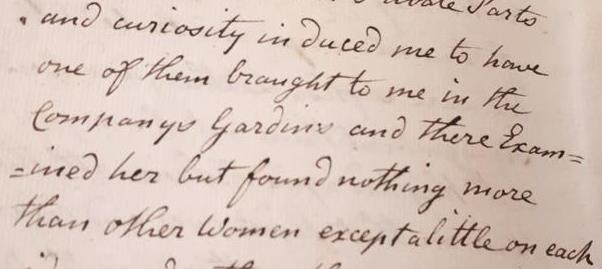 Parts
. and curiosity induced me to have
one of them braught to me in the
Companys Gardins and there Exam=
=ined her but found nothing more
than other Women except a little on each